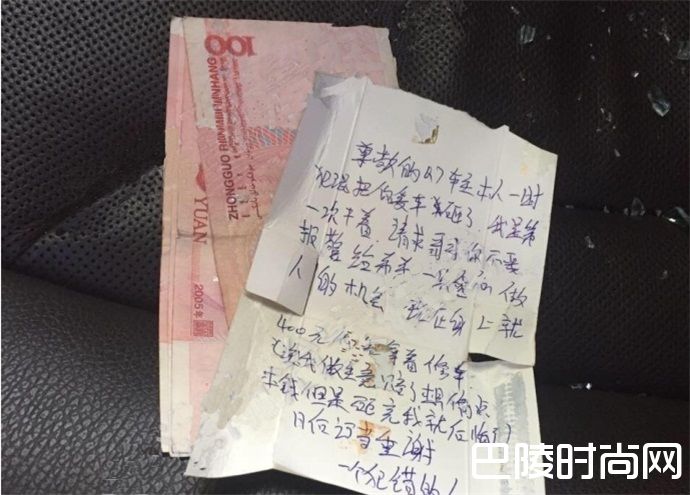 100
ZHONGGUO RENMIN YINHANG
YUAN
2005年
的Q7车主本人一时
犯混把你爱车砸了 我是第
一次干着 请求哥哥你不要
报警给弟弟一次 做
人的机会 现在身上就
400元你先拿着修车
我做生意赔了想偷点
本钱但是砸完我就后悔了)
日后订当重谢
一个犯错的人
巴陵时尚网